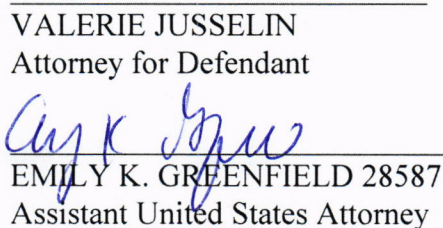 VALERIE JUSSELIN
Attorney for Defendant
EMILY K. GREENFIELD 28587
Assistant United States Attorney